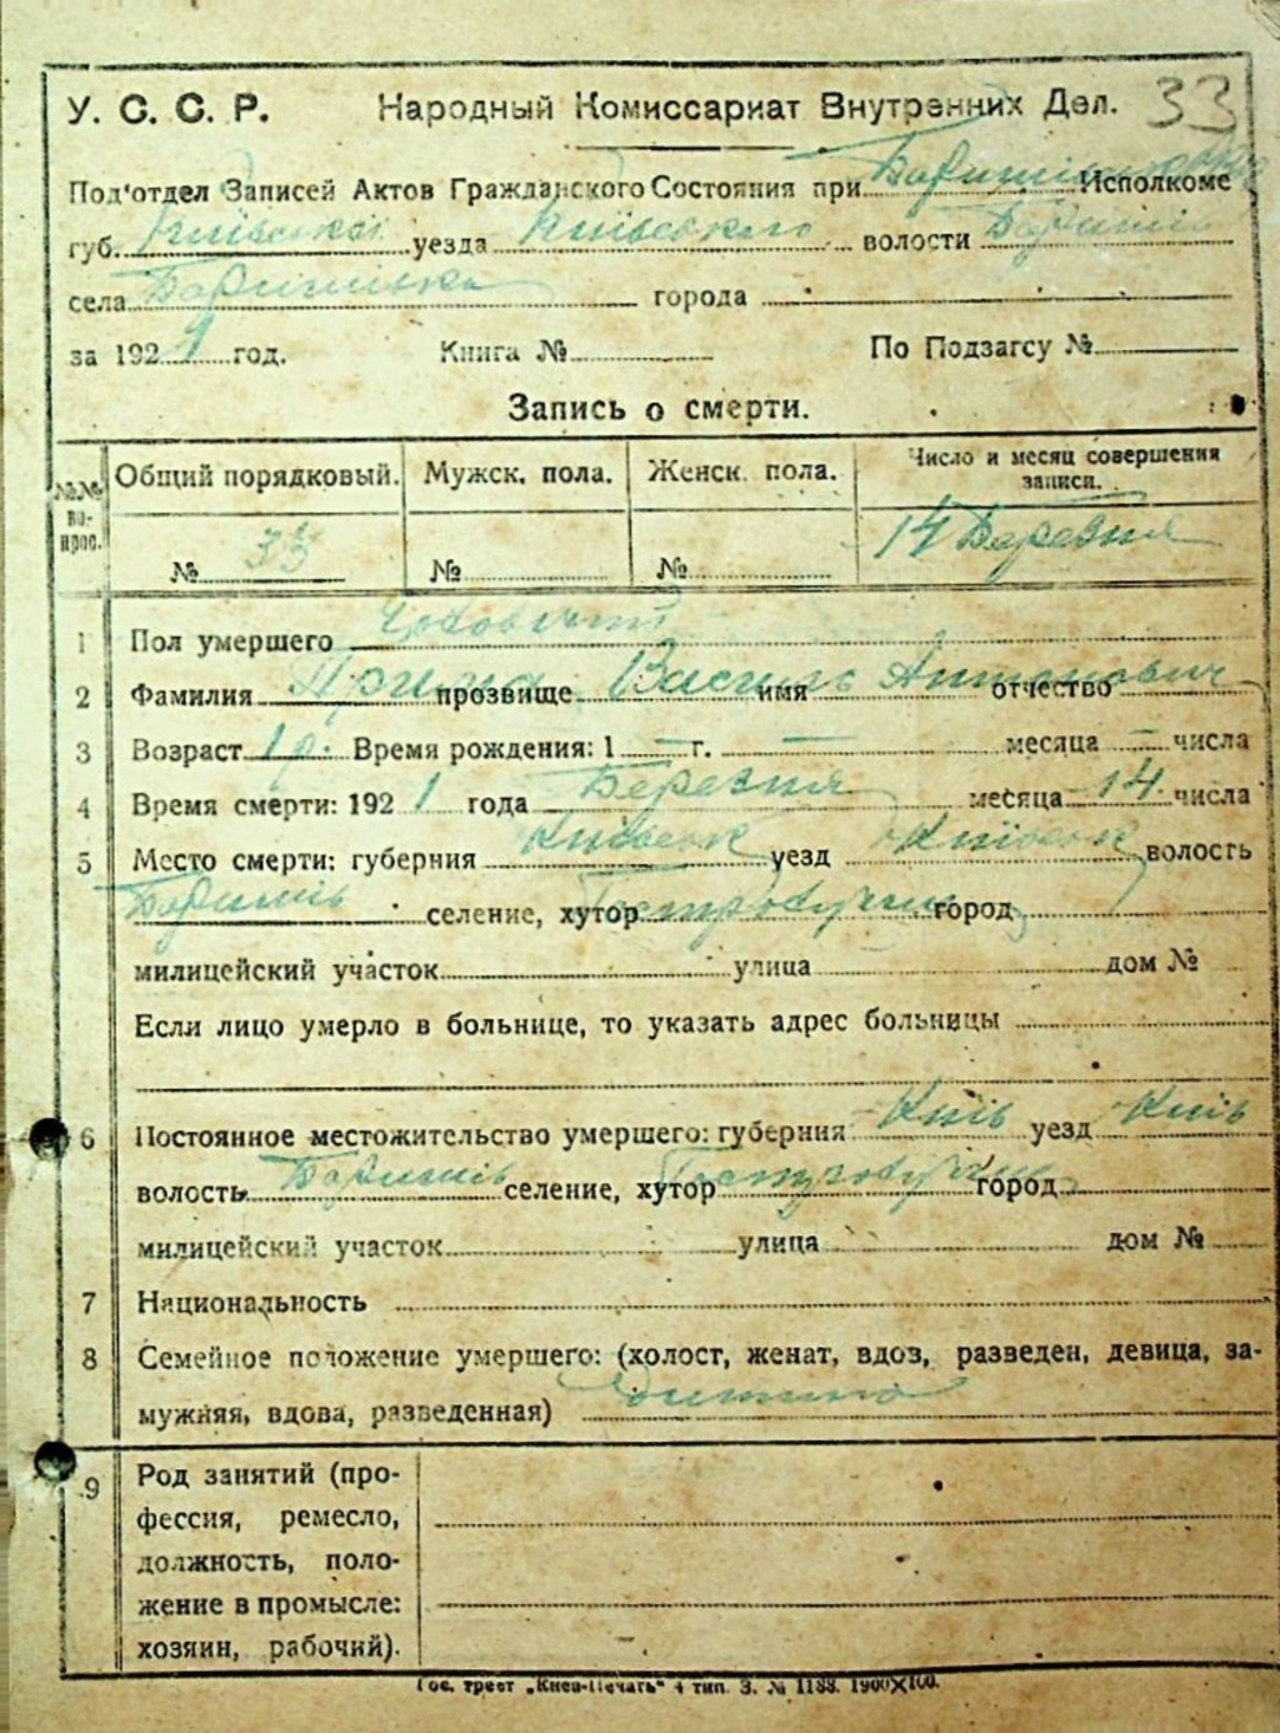 33
У. С. С. Р. Народный Комиссариат Внутренних Дел.
Под'отдел Записей Актов Гражданского Состояния при Исполкоме
губ. Київської уезда Київського волости Баришів
села Баришівка города
за 1921 год. Книга № По Подзагсу №
Запись о смерти.
№№ вопрос. Общий порядковый. Мужск. пола. Женск. пола. Число и месяц совершения записи.
№ 33 № № 14 Березня
1 Пол умершего Чоловічий
2 Фамилия прозвище Василь имя Антонович отчество
3 Возраст 1 р. Время рождения: 1 — г. — месяца — числа
4 Время смерти: 1921 года Березня месяца 14 числа
5 Место смерти: губерния Київськ уезд Київськ волость
Баришів селение, хутор город
милицейский участок улица дом №
Если лицо умерло в больнице, то указать адрес больницы
6 Постоянное местожительство умершего: губерния Київ уезд Київ
волость Баришів селение, хутор город
милицейский участок улица дом №
7 Национальность
8 Семейное положение умершего: (холост, женат, вдов, разведен, девица, за-
мужняя, вдова, разведенная) дитина
9 Род занятий (про-
фессия, ремесло,
должность, поло-
жение в промысле:
хозяин, рабочий).
Гос. трест „Киев-Печать" 4 тип. З. № 1188. 1900X100.